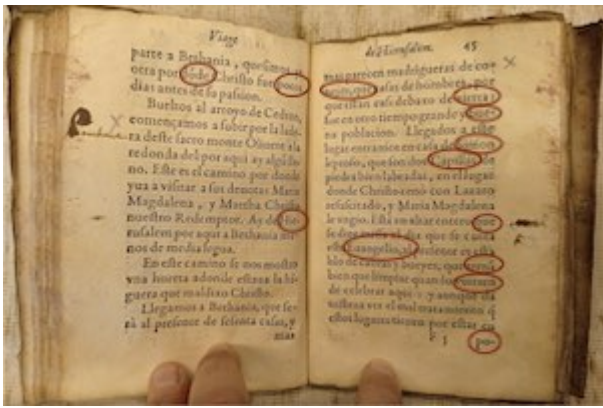 Viage
parte a Bethania, quesimos ir
otra por dōde Christo fue pocos
dias antes de su passion.
Bueltos al arroyo de Cedron,
començamos a subir por la lade
ra deste sacro monte Oliuete a la
redonda del por aqui ay algū ca
no. Este es el camino por donde
yua a visitar a sus deuotas Maria
Magdalena, y Martha Christo
nuestro Redemptor. Ay de Hie-
rusalem por aqui a Bethania me
nos de media legua.
En este camino se nos mostro
vna huerta adonde estaua la hi-
guera que maldixo Christo.
Llegamos a Bethania, que se-
rà al presente de sesenta casas, y
mas
de Hierusalem. 45
mas parecen madrigueras de co-
nejos, que casas de hombres, por
que estan casi debaxo de tierra:
fue en otro tiempo grande y
na poblacion. Llegados a este
lugar entramos en casa de Simon
leproso, que son dos Capillas de
piedra bien labradas, en el lugar
donde Christo cenò con Lazaro
resuscitado, y Maria Magdalena
le vngio. Està un altar entero, que
se dize missa al dia que se canta
este Euangelio, al presente es esta
blo de cabras y bueyes, que
bien que limpiar quando
de celebrar aqui: y aunque da
ver el mal tratamiento q̃
estos lugares tienen por estar en
F 5 po-